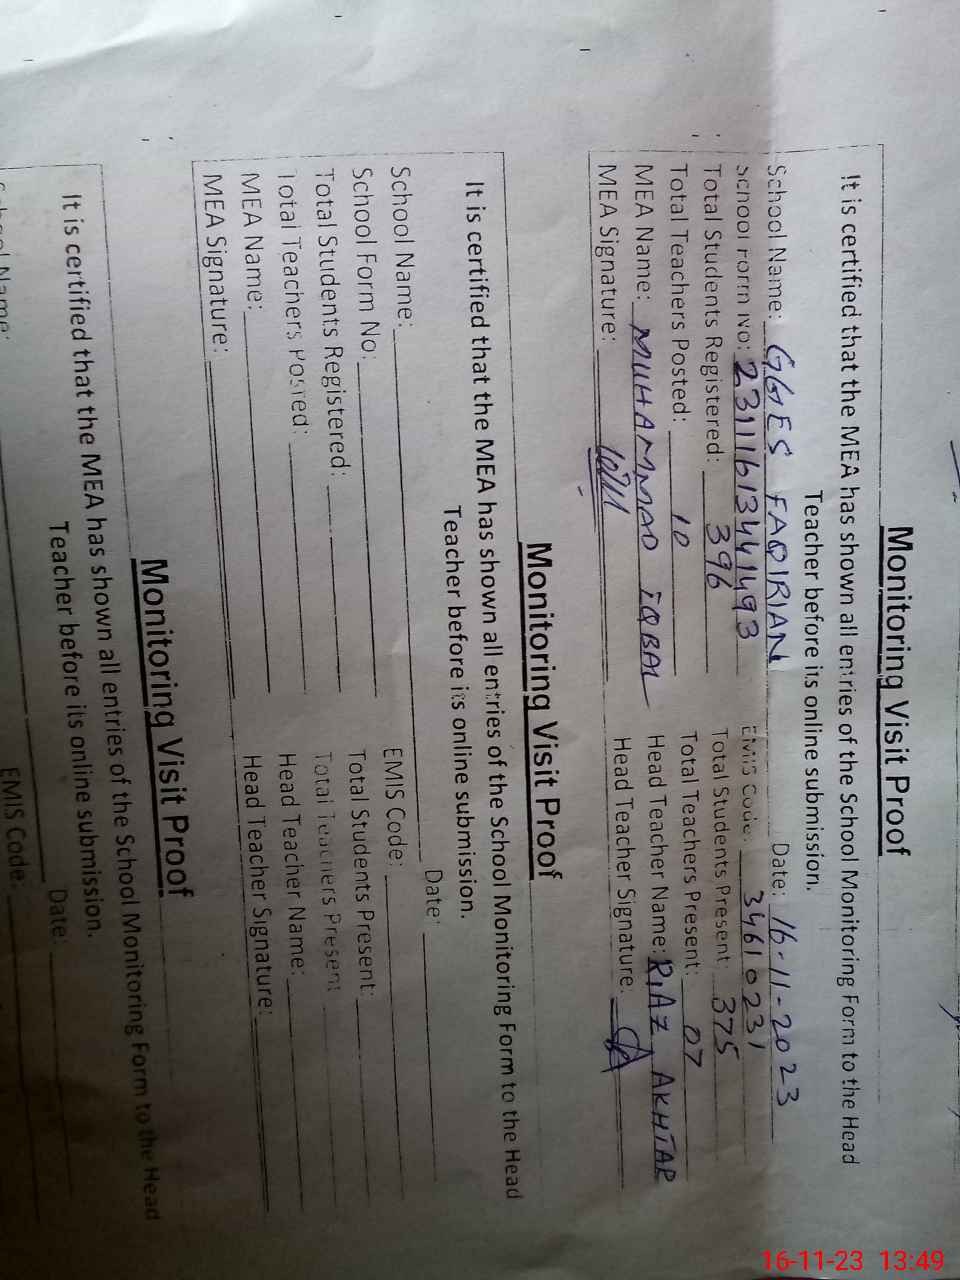 Monitoring Visit Proof
It is certified that the MEA has shown all entries of the School Monitoring Form to the Head
Teacher before its online submission.
School Name: GGES FAQIRIAN Date: 16-11-2023
School Form No: 231116134441493 EMIS Code: 34610231
Total Students Registered: 396 Total Students Present: 375
Total Teachers Posted: 10 Total Teachers Present: 07
MEA Name: MUHAMMAD IQBAL Head Teacher Name: RIAZ AKHTAR
MEA Signature: Head Teacher Signature:
Monitoring Visit Proof
It is certified that the MEA has shown all entries of the School Monitoring Form to the Head
Teacher before its online submission.
School Name: Date:
School Form No: EMIS Code:
Total Students Registered: Total Students Present:
Total Teachers Posted: Total Teachers Present
MEA Name: Head Teacher Name:
MEA Signature: Head Teacher Signature:
Monitoring Visit Proof
It is certified that the MEA has shown all entries of the School Monitoring Form to the Head
Teacher before its online submission.
School Name: Date:
EMIS Code:
16-11-23 13:49